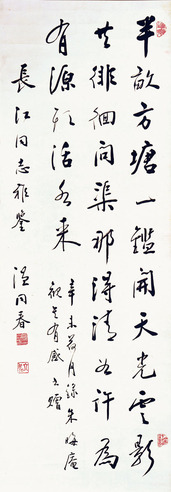 半畝方塘一鑑開天光雲影
共徘徊問渠那得清如許為
有源頭活水來
辛未荷月錄朱晦庵
觀書有感書贈
長江同志雅鑒
溫同春